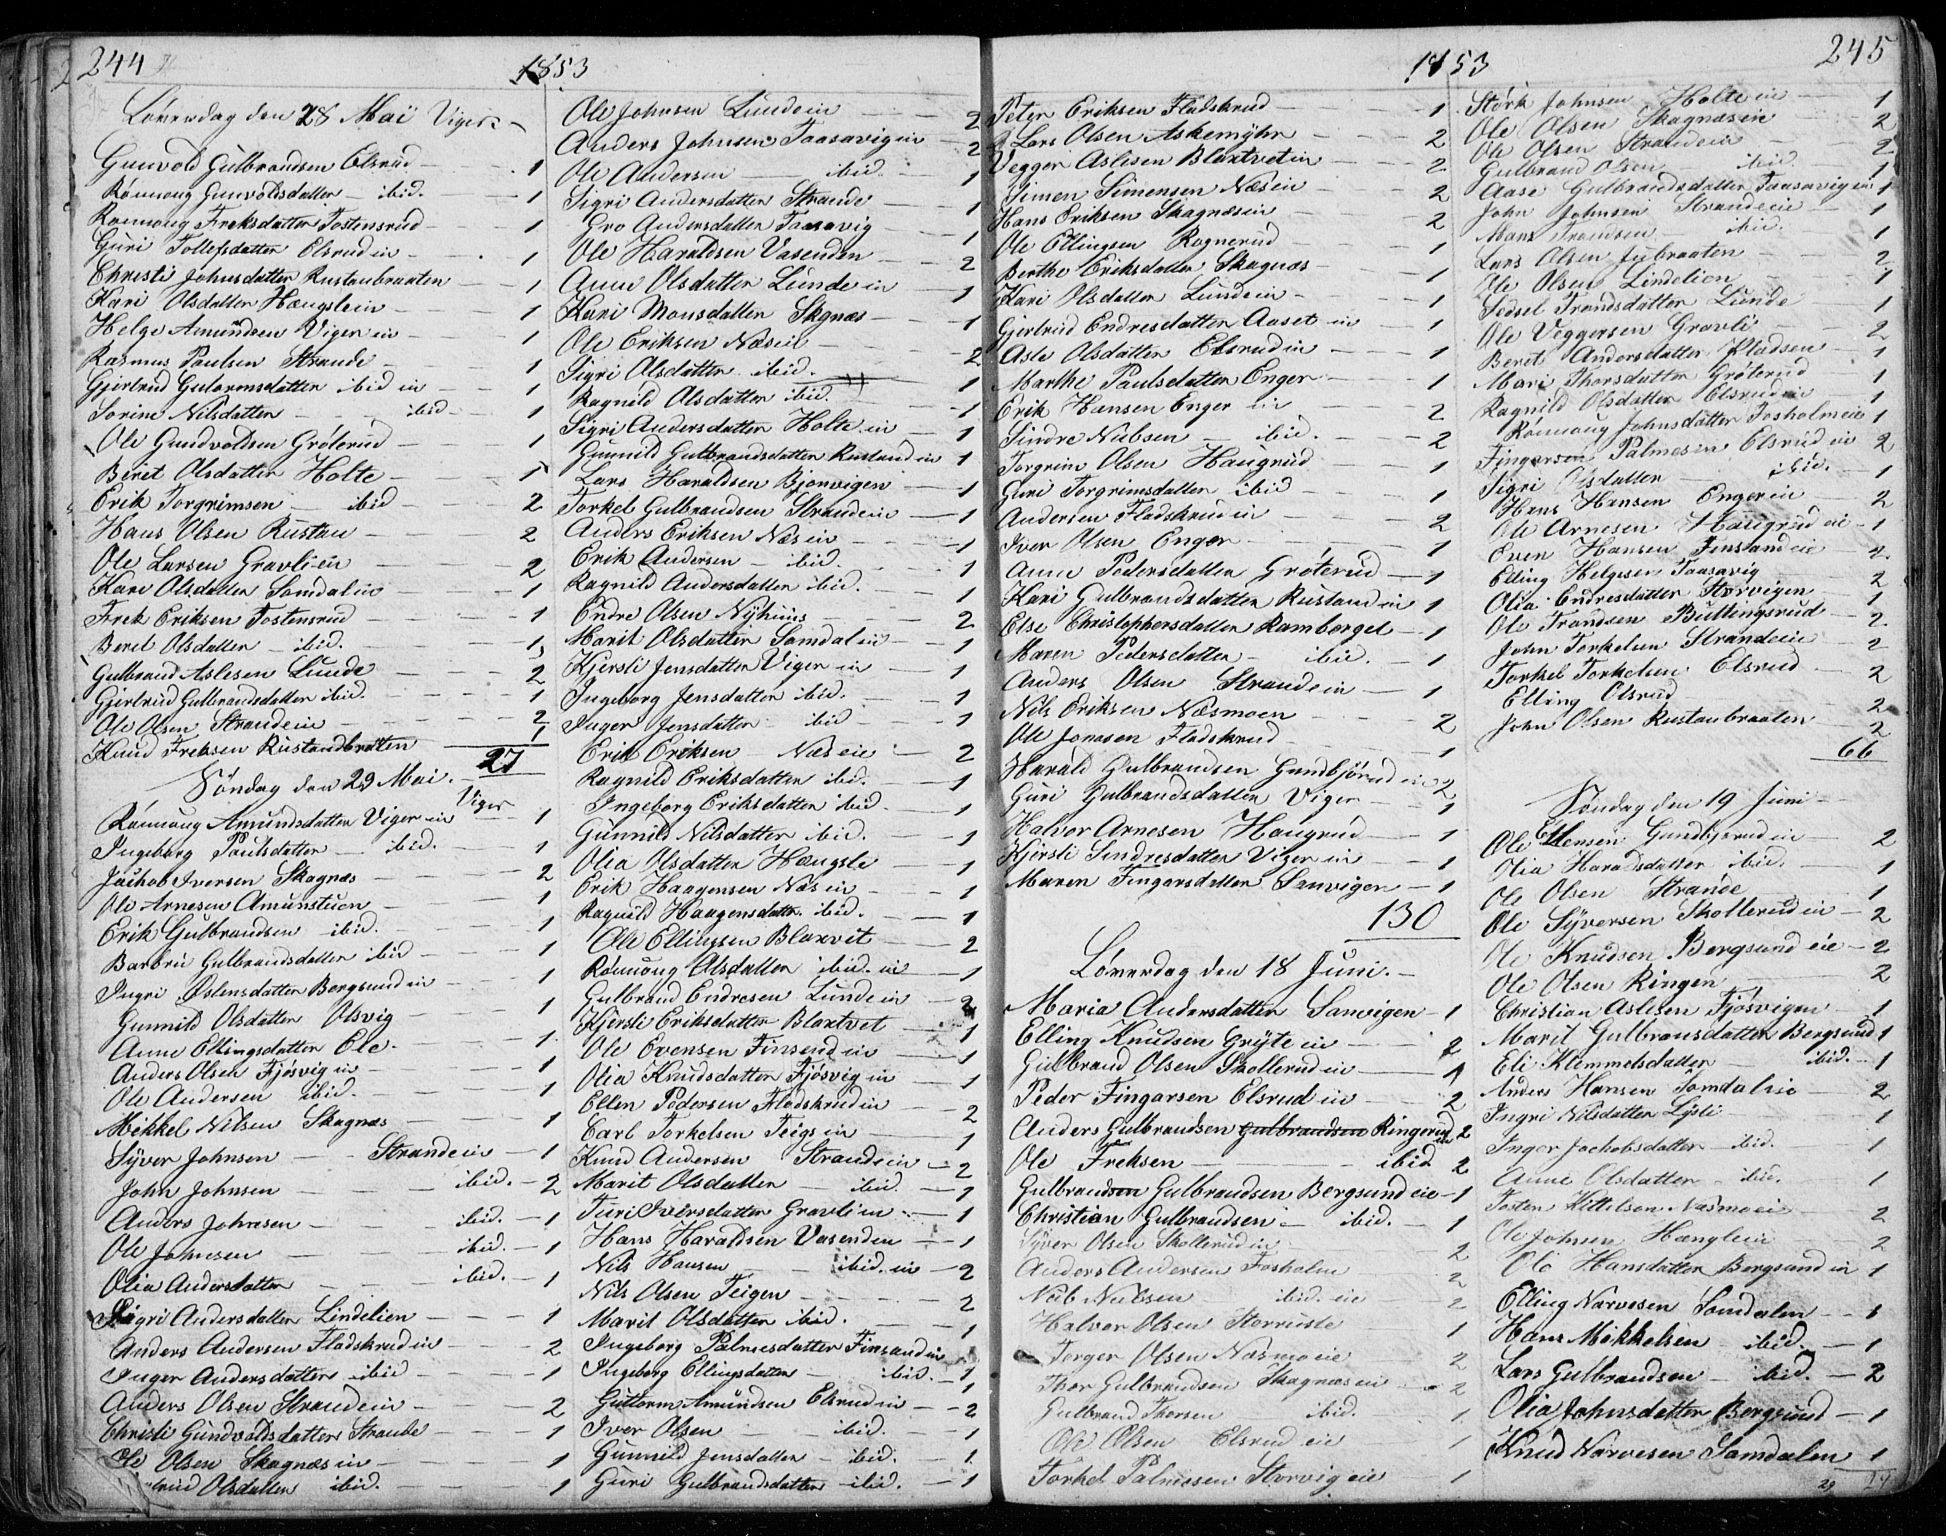 244
1853
Löverdag den 28 Mai Viger
Gunvold Gulbrandsen Elsrud 1
Rönnoug Gunvoldsdatter ibid. 1
Rönnoug Freksdatter Tostensrud 1
Guri Tollefsdatter Elsrud in 1
Christi Johnsdatter Rustanbraaten 1
Kari Olsdatter Hængslein 1
Helge Amundsen Viger ein 1
Rasmus Paulsen Strande 1
Gjertrud Gutormsdatter ibid in 1
Sorine Nilsdatter ibid 1
Ole Gundvoldsen Gröterud 1
Beret Olsdatter Holte 1
Erik Torgrimsen ibid 2
Hans Olsen Rustan 2
Ole Larsen Gravli ein 2
Kari Olsdatter Somdal in 1
Frek Eriksen Tostensrud 1
Beret Olsdatter ibid. 1
Gulbrand Aslesen Lunde 2
Gjertrud Gulbrandsdatter ibid. 1
Ole Olsen Strandein 2
Knud Freksen Rustandbratten 1
27
Söndag den 29 Mai. Viger
Rönnoug Amundsdatter Viger ein 1
Ingeborg Paulsdatter ibid. 1
Jachob Iversen Skagnæs 2
Ole Arnesen Amunstuen 1
Erik Gulbrandsen ibid. 1
Barbru Gulbrandsdatter ibid 1
Ingri Aslensdatter Bergsund ein 1
Gunnild Olsdatter Olsvig 1
Anne Ellingsdatter Ele 1
Anders Olsen Fjösvig in 1
Ole Andersen ibid. 1
Mikkel Nilsen Skagnæs 1
Syver Johnsen Strandein 1
John Johnsen ibid. 2
Anders Johnsen ibid. 1
Ole Johnsen ibid. 1
Olia Andersdatter ibid. 1
Sigri Andersdatter Lindelien 1
Anders Andersen Fladskrud in 2
Inger Andersdatter ibid 1
Anders Olsen Strandein 2
Christi Gundvoldsdatter Strande 1
Ole Olsen Skagnæs in 1
Olsdatter ibid. 1
Ole Johnsen Lunde in 2
Anders Johnsen Taasavig in 2
Ole Andersen ibid. 1
Sigri Andersdatter Strande 1
Gro Andersdatter Taasavig 1
Ole Haraldsen Vasenden 2
Anne Olsdatter Lunde in 1
Kari Monsdatter Skgnæs 1
Ole Eriksen Næsein 2
Sigri Olsdatter ibid. 1
Ragnild Olsdatter ibid. 1
Sigri Andersdatter Holte in 1
Gunnild Gulbrandsdatter Rustand in 1
Lars Haraldsen Bjonvigen 1
Torkel Gulbrandsen Strandein 1
Anders Eriksen Næs in 1
Erik Andersen ibid. 1
Ragnild Andersdatter ibid. 1
Endre Olsen Nyhuus 2
Marit Olsdatter Somdal in 1
Kjersti Jensdatter Viger in 1
Ingeborg Jensdatter ibid. 1
Inger Jensdatter ibid 1
Erik Eriksen Næs eie 2
Ragnild Eriksdatter ibid. 1
Ingeborg Eriksdatter ibid. 1
Gunnild Nilsdatter ibid. 1
Olia Olsdatter Hængsle 1
Erik Haagensen Næs in 1
Ragnild Haagensdattr. ibid. 1
Ole Ellingsen Blaxvet 2
Rönnoug Olsdatter ibid. in 1
Gulbrand Endresen Lunde in 2
Kjersti Eriksdatter Blaxtvet 1
Ole Evensen Finsend in 1
Olia Knudsdatter Fjösvig in 1
Ellen Pedersen Fladskrud in 2
Carl Torkelsen Teigs in 1
Knud Andersen Strandein 2
Marit Olsdatter ibid. 1
Turi Iversdatter Gravli in 1
Hans Haraldsen Vasenden 1
Nils Hansen ibid. in 2
Nils Olsen Teigen 2
Marit Olsdatter ibid. 1
Ingeborg Palmesdatter Finsand in 1
Ingeborg Ellingsdatter ibid. 1
Guttorm Amundsen Elsrud in 2
Iver Olsen ibid. 1
Gunnild Jensdatter ibid. 1
Guri Gulbrandsdatter ibid. 1
245
1853
Peter Eriksen Fladskrud 1
Lars Olsen Askemyhr 2
Vegger Aslesen Blaxtvet in 2
Simen Simensen Næs ein 2
Hans Eriksen Skagnæsein 2
Ole Ellingsen Rognerud 1
Berthe Eriksdatter Skagnæs 1
Kari Olsdatter Lunde in 1
Gjertrud Endresdatter Aaset in 1
Asle Olsdatter Elsrud in 1
Marthe Paulsdatter Enger 1
Erik Hansen Enger in 2
Sindre Nubsen ibid. 2
Torgrim Olsen Haugrud 1
Guri Torgrimsdatter ibid 1
Andersen Fladskrud in 2
Iver Olsen Enger 1
Anne Pedersdatter Gröterud 1
Kari Gulbrandsdatter Rustand in 1
Else Christophersdatter Ramberget 1
Maren Pedersdatter ibid. 1
Anders Olsen Strandein 1
Nils Eriksen Næsmoen 2
Ole Jonasen Fladskrud 1
Harald Gulbrandsen Gundbjörud in 2
Guri Gulbrandsdatter Viger 1
Halvor Arnesen Haugrud 1
Kjersti Sindresdatter Viger in 1
Maren Fingarsdatter Sanvigen 1
130
Löverdag den 18 Juni.
Maria Andersdatter Sanvigen 1
Elling Knudsen Gryte in 2
Gulbrand Olsen Skollerud in 1
Peder Fingarsen Elsrud in 2
Anders Gulbrandsen Gulbrandsen Ringerud 2
Ole Freksen ibid 2
Gulbrandsen Gulbrandsen Bergsund eie 1
Christian Gulbrandsen ibid. 1
Syver Olsen Skollerud in 2
Anders Andersen Fosholm 2
Nub Nubsen ibid. eie 2
Halvor Olsen Storruste 1
Torger Olsen Næsmoeie 2
Thor Gulbrandsen Skagnæs in 2
Gulbrand Thorsen ibid. 1
Ole Olsen Elsrud eie 1
Torkel Palmesen Storvig eie 1
Störk Johnsen Holte in 1
Ole Olsen Skagnæsein 2
Ole Olsen Strandein 2
Gulbrand Olsen ibid. 1
Aase Gulbrandsdatter Taasavig in 1
John Johnsen Strandeie 1
Mans Trondsen ibid. 1
Lars Olsen Jubraaten 2
Ole Olsen Lindelien 1
Sedsel Trondsdatter Lunde 1
Ole Veggersen Gravli 2
Beret Andersdatter Pladsen 1
Mari Thorsdatter Gröterud 1
Ragnild Olsdatter Elsrud in 1
Rönnoug Johnsdatter Fosholm eie 1
Fingarsen Palmesen Elsrud in 2
Sigri Olsdatter ibid. 1
Hans Hansen Engerein 2
Ole Arnesen Haugrud eie 1
Even Hansen Finsand eie 2
Elling Helgesen Taasavig 2
Olia Endresdatter Storvigen 1
Ole Trondsen Bullungsrud 2
John Torkelsen Strandeie 2
Torkel Torkelsen Elsrud 2
Elling Elsrud 2
John Olsen Rustanbraaten 2
66
Söndag den 19 Juni
Ole Ellensen Gundbjsrud in 2
Olia Haraldsdatter ibid. 1
Ole Olsen Strande 1
Ole Syversen Skollerud in 2
Ole Knudsen Bergsund eie 2
Ole Olsen Ringen 2
Christian Aslesen Fjösvigen 1
Marit Gulbransdatter Bergsund 1
Eli Klemmetsdatter ibid. 1
Anders Hansen Somdal eie 2
Ingri Nilsdatter Lyste 1
Inger Jachobsdatter ibid. 1
Anne Olsdatter ibid. 1
Tosten Kittelsen Næsmoeie 2
Ole Johnsen Hænglein 2
Ole Hansdatter Bergsund in 1
Elling Narvesen Somdalen 1
Hans Mikkelsen ibid. 1
Lars Gulbrandsen ibid. 2
Olia Johnsdatter Bergsund 1
Knud Narvesen Samdalen 1
29